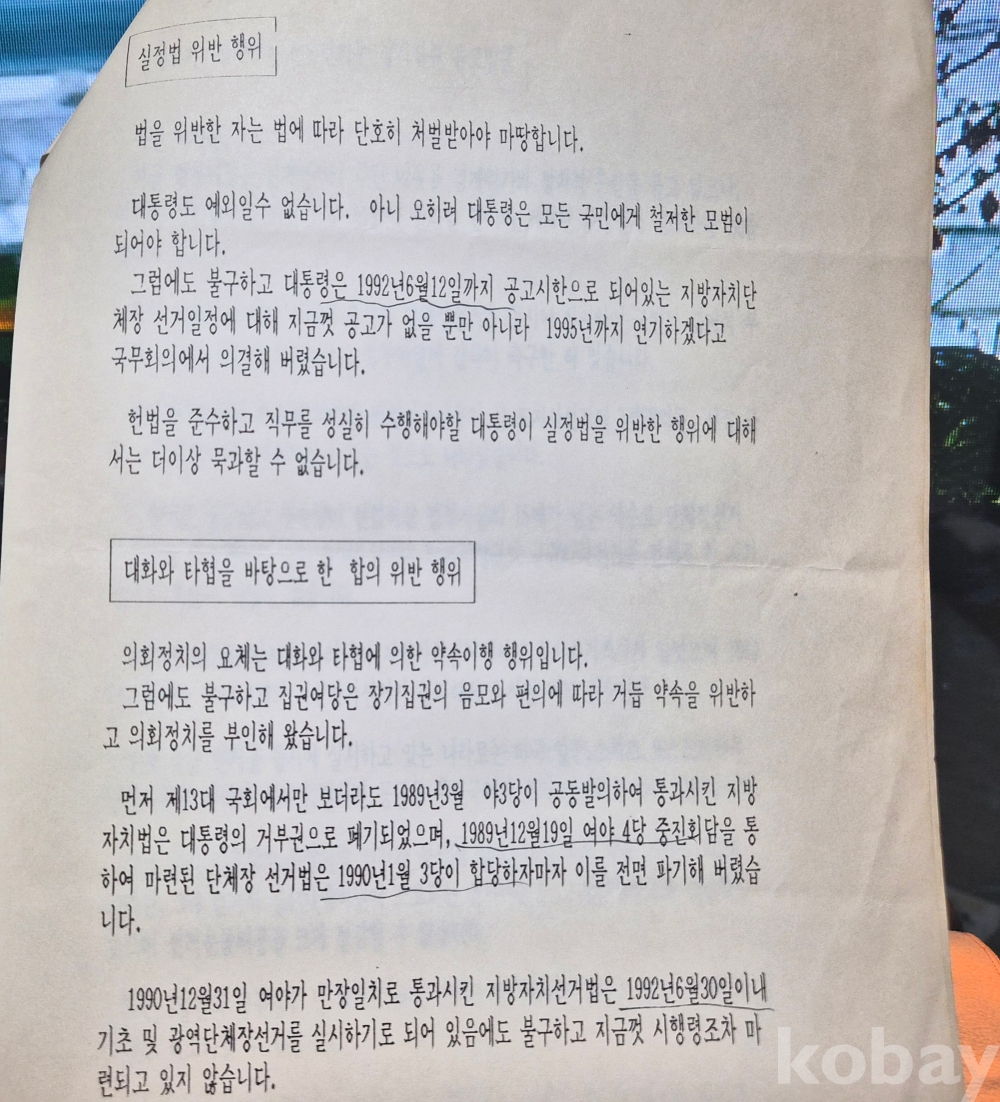 실정법 위반 행위
법을 위반한 자는 법에 따라 단호히 처벌받아야 마땅합니다.
대통령도 예외일수 없습니다. 아니 오히려 대통령은 모든 국민에게 철저한 모범이
되어야 합니다.
그럼에도 불구하고 대통령은 1992년6월12일까지 공고시한으로 되어있는 지방자치단
체장 선거일정에 대해 지금껏 공고가 없을 뿐만 아니라 1995년까지 연기하겠다고
국무회의에서 의결해 버렸습니다.
헌법을 준수하고 직무를 성실히 수행해야할 대통령이 실정법을 위반한 행위에 대해
서는 더이상 묵과할 수 없습니다.
대화와 타협을 바탕으로 한 합의 위반 행위
의회정치의 요체는 대화와 타협에 의한 약속이행 행위입니다.
그럼에도 불구하고 집권여당은 장기집권의 음모와 편의에 따라 거듭 약속을 위반하
고 의회정치를 부인해 왔습니다.
먼저 제13대 국회에서만 보더라도 1989년3월 야3당이 공동발의하여 통과시킨 지방
자치법은 대통령의 거부권으로 폐기되었으며, 1989년12월19일 여야 4당 중진회담을 통
하여 마련된 단체장 선거법은 1990년1월 3당이 합당하자마자 이를 전면 파기해 버렸습
니다.
1990년12월31일 여야가 만장일치로 통과시킨 지방자치선거법은 1992년6월30일이내
기초 및 광역단체장선거를 실시하기로 되어 있음에도 불구하고 지금껏 시행령조차 마
련되고 있지 않습니다.
kobay